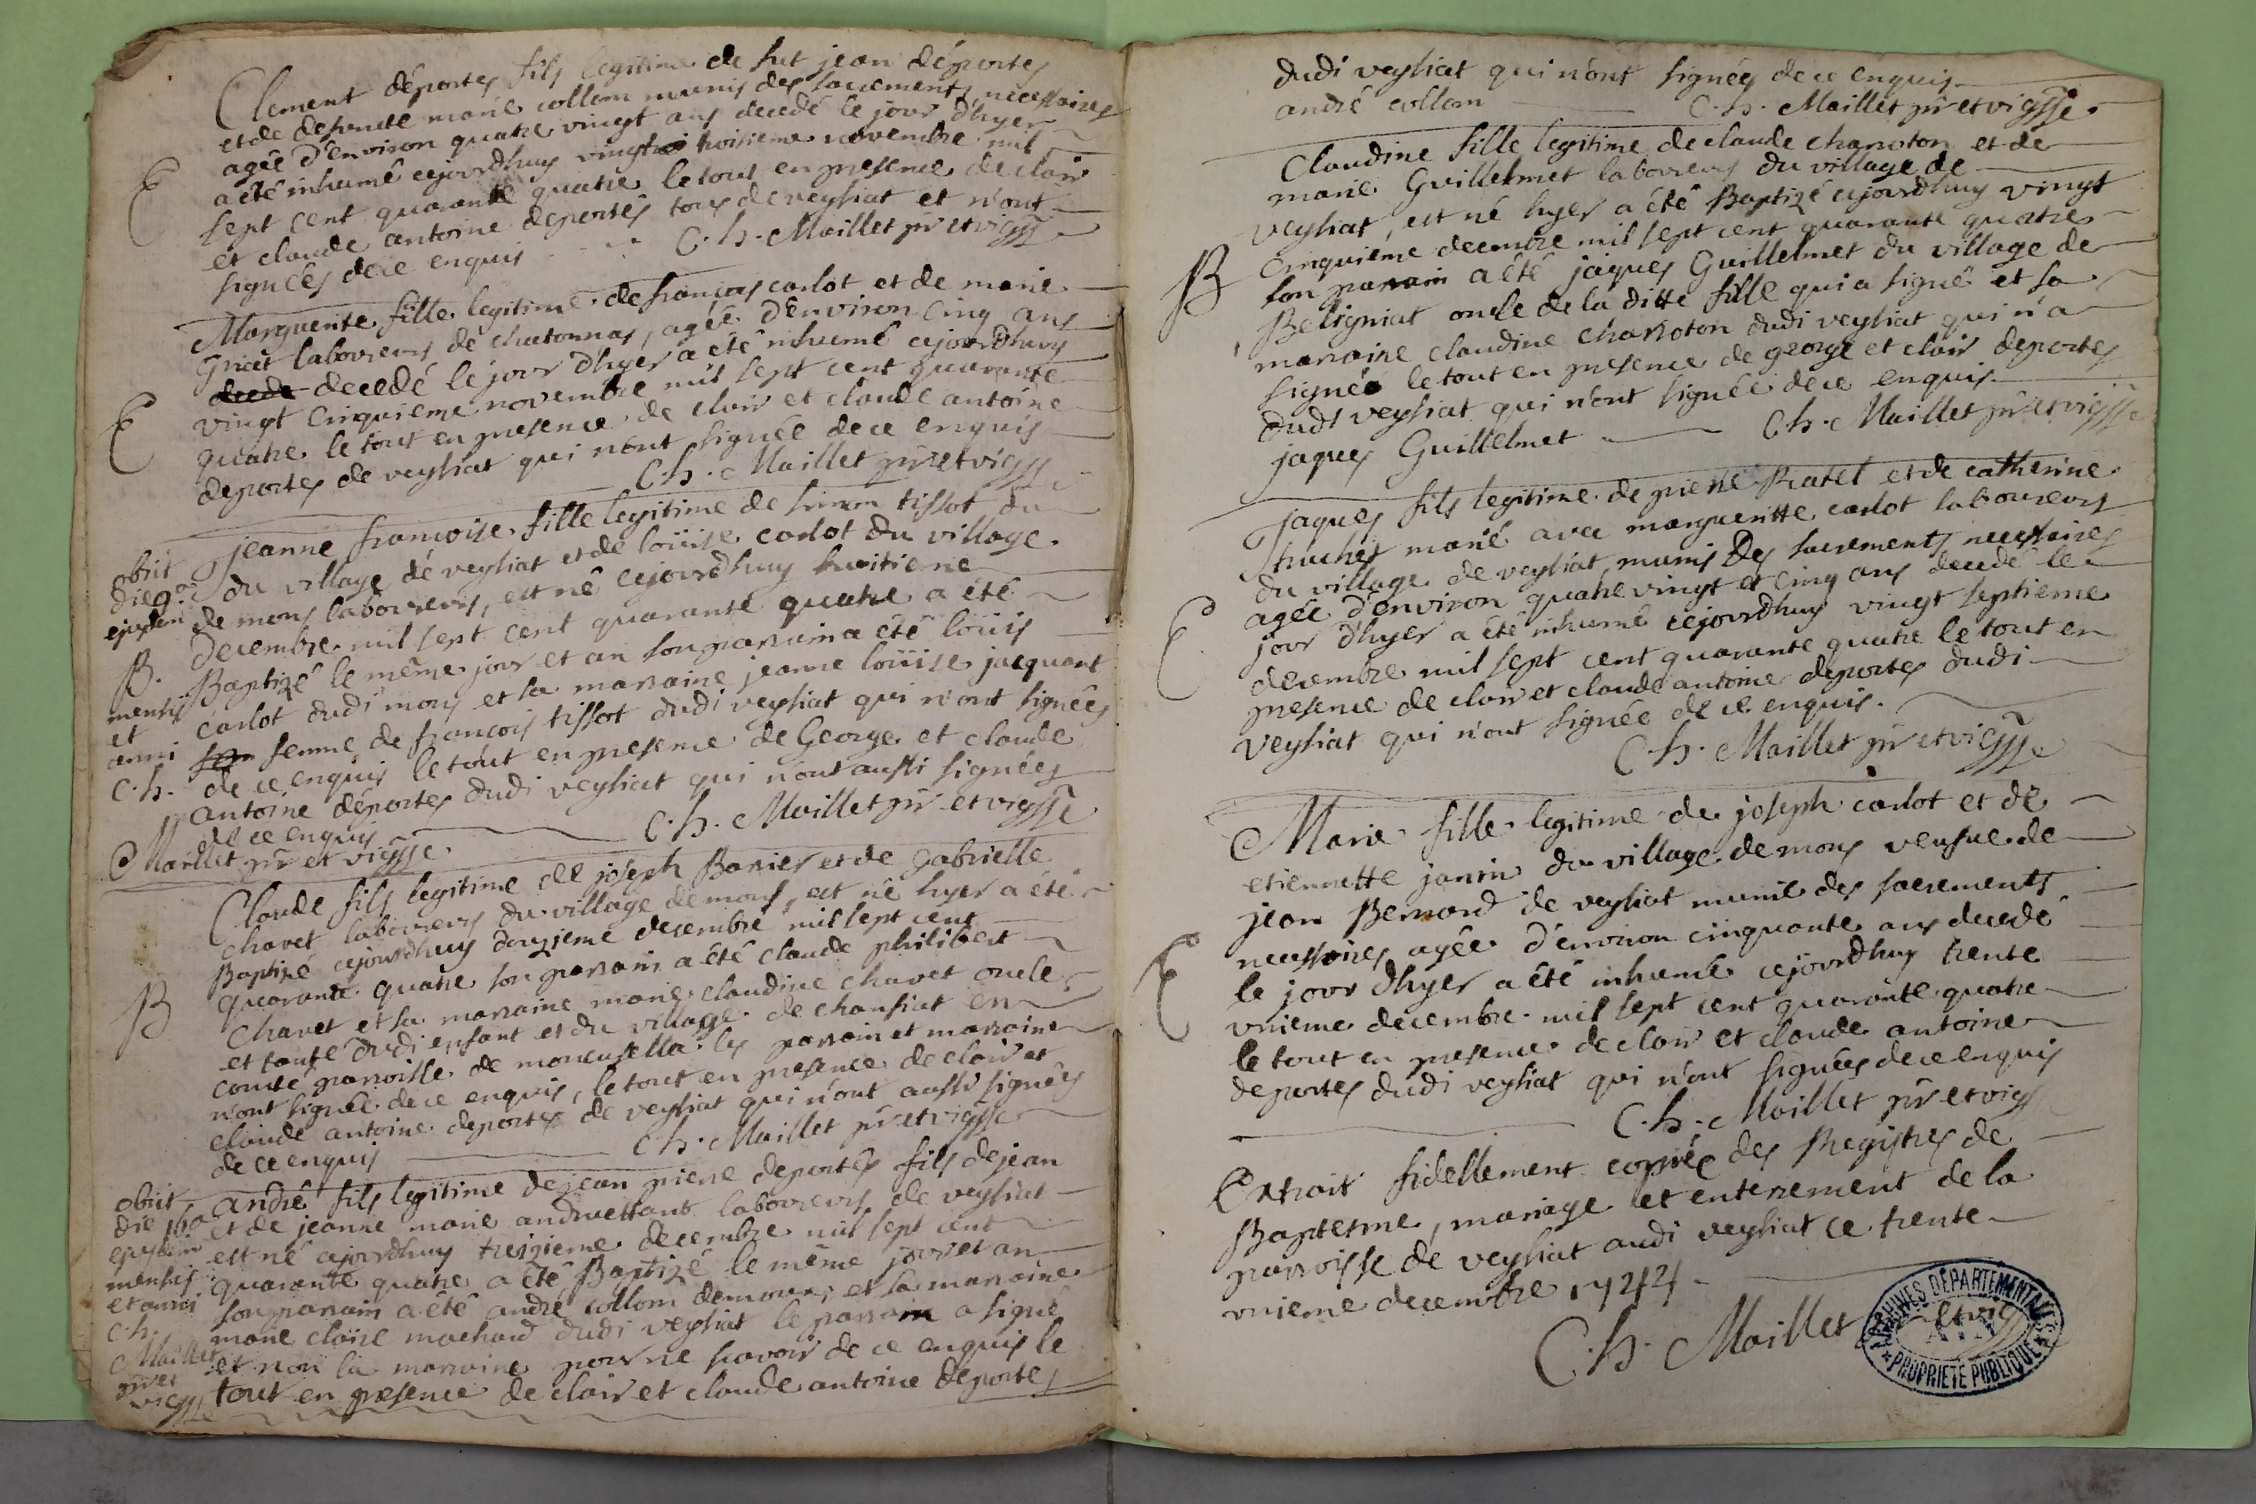 Clement déportes fils legitime de fut jean déportes
et de defunte marie collom munis des sacrements necessaires
agée d'environ quatre vingt ans decedé le jour d'hyer
E
a été inhumé cejourdhuy vingt troisieme novembre mil
sept cent quarante quatre le tout en presence de clair
et claude antoine deportés tous de veysiat et n'ont
signées de ce enquis C. h. Maillet ptr et vic
Marguerite fille legitime de françois carlot et de marie
labovrevrs de chatonnas, agée d'environ Cinq ans
decede decedé le jour d'hyer a été inhumé cejourdhuy
E
vingt cinquieme novembre mil sept cent quarante
quatre le tout en presence de clair et claude antoine
deportes de veysiat qui n'ont signée de ce enquis
C. h. Maillet ptr et vic
jeanne francoise fille legitime de simon tissot du
du village dé veysiat et de loüise carlot du village
de mons labovrevrs, est né cejourdhuy huitieme
decembre mil sept cent quarante quatre a été
Baptizé le même jour et an son parrain a été loüis
carlot dudi mons et sa marraine jeanne loüise jacquant
femme de francois tissot dudi veysiat qui n'ont signées
de ce enquis le tout en presence de George et claude
antoine déportes dudi veysiat qui n'ont aussi signées
de ce enquis C. h. Maillet ptr et vic
obiit
die 9a
ejusdem
B.
mensis
et
anni
C. h.
Maillet ptr et vic
Claude fils legitime de joseph Banier et de gabrielle
chavet labovrevrs du village de mons, est né hyer a été
Baptizé cejourdhuy douzieme decembre mil sept cent
quarante quatre son parrain a été claude philibert
B
Chavet et sa marraine marie claudine chavet oncle
et tante dudi enfant et du village de chansiat en
comté parroisse de les parrain et marraine
n'ont signée de ce enquis, le tout en presence de clair et
claude antoine deportes de veysiat qui n'ont aussi signées
de ce enquis C. h. Maillet ptr et vic
andré fils legitime de jean pierre deportés fils de jean
et de jeanne marie labovrevrs de veysiat
est né cejourdhuy treizieme decembre mil sept cent
quarante quatre a été Baptizé le même jour et an
son parrain a été andré collom et sa marraine
marie claire machard dudi veysiat le parrain a signé
et non la marraine pour ne scavoir de ce enquis le
tout en presence de clair et claude antoine deportes
obiit
die 16a
ejusdem
mensis
et anni
C. h.
Maillet
ptr et
vic
dudi veysiat qui n'ont signées de ce enquis
andré collom C. h. Maillet ptr et vic
Claudine fille legitime de claude charroton et de
marie Guillelmet labovrevrs du village de
veysiat, est né hyer a été Baptizé cejourdhuy vingt
cinquième decembre mil sept cent quarante quatre
B
son parrain a été jaques Guillelmet du village de
Beligniat oncle de la ditte fille qui a signé et sa
marraine claudine charroton dudi veysiat qui n'a
signée le tout en presence de george et clair deportes
dudi veysiat qui n'ont signée de ce enquis
jaques Guillelmet C. h. Maillet ptr et vic
jaques fils legitime de pierre Ratel et de catherine
marié avec margueritte carlot labourevrs
du village de veysiat, munis des sacrements necessaires
agée d'environ quatre vingt et cinq ans decedé le
E
jour d'hyer a été inhumé cejourdhuy vingt septieme
decembre mil sept cent quarante quatre le tout en
presence de clair et claude antoine deportes dudi
veysiat qui n'ont signée de ce enquis.
C. h. Maillet ptr et vic
Marie fille legitime de joseph carlot et de
etiennette janin du village de mons veufue de
jean Bernard de veysiat munie des sacrements
necessaires agée d'environ cinquante ans decedé
E
le jour d'hyer a été inhumée cejourdhuy trente
vnieme decembre mil sept cent quarante quatre
le tout en presence de clair et claude antoine
deportes dudi veysiat qui n'ont signées de ce enquis
C. h. Maillet ptr et vic
Extrait fidellement copiée des Registres de
Baptesme, mariage et enterrement de la
parroisse de veysiat audi veysiat ce trente
vnieme decembre 1744
C. h. Maillet et vic
ARCHIVES DÉPARTEMENTALES
AIN
PROPRIETE PUBLIQUE